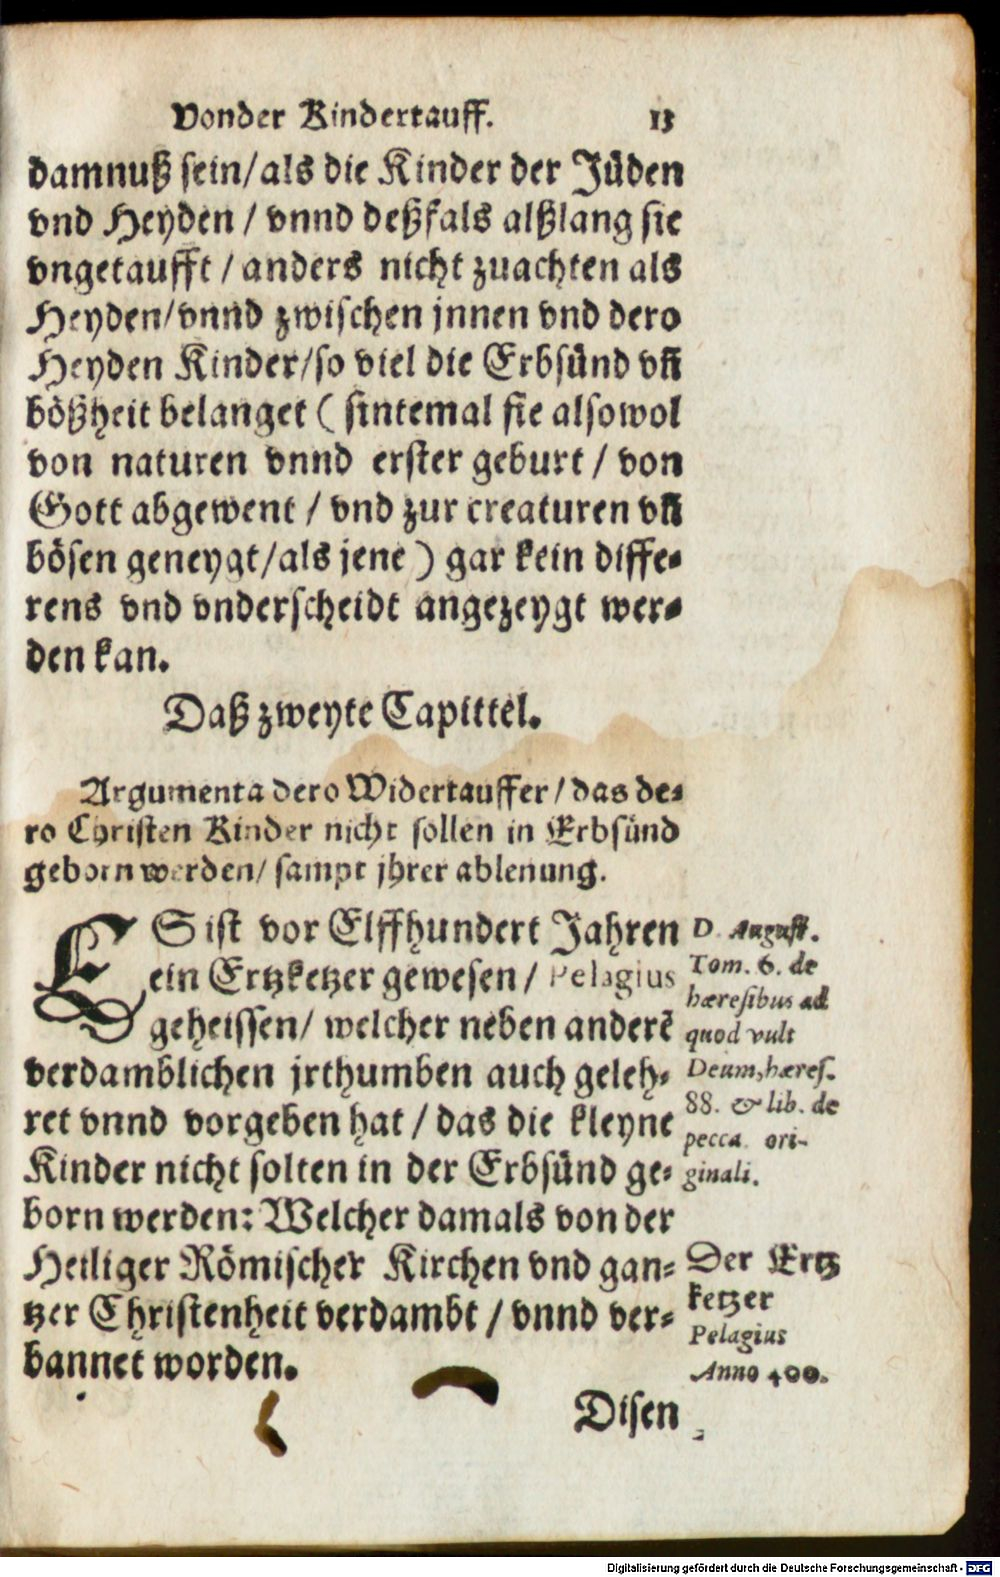 Vonder Kindertauff. 13
damnuß sein/als die Kinder der Jüden
vnd Heyden / vnnd deßfals alßlang sie
vngetaufft / anders nicht zuachten als
Heyden/vnnd zwischen jnnen vnd dero
Heyden Kinder/so viel die Erbsünd vñ
bößheit belanget ( sintemal sie alsowol
von naturen vnnd erster geburt / von
Gott abgewent / vnd zur creaturen vñ
bösen geneygt/als jene ) gar kein diffe-
rens vnd vnderscheidt angezeygt wer-
den kan.
Daß zweyte Capittel.
Argumenta dero Widertauffer / das de-
ro Christen Kinder nicht sollen in Erbsünd
geborn werden/ sampt jhrer ablenung.
ES ist vor Elffhundert Jahren
ein Ertzketzer gewesen / Pelagius
geheissen/ welcher neben anderē
verdamblichen jrthumben auch geleh-
ret vnnd vorgeben hat / das die kleyne
Kinder nicht solten in der Erbsünd ge-
born werden: Welcher damals von der
Heiliger Römischer Kirchen vnd gan-
tzer Christenheit verdambt / vnnd ver-
bannet worden.
D. August.
Tom. 6. de
hæresibus ad
quod vult
Deum, hæres.
88. & lib. de
pecca. ori-
ginali.
Der Ertz
ketzer
Pelagius
Anno 400.
Disen
Digitalisierung gefördert durch die Deutsche Forschungsgemeinschaft - DFG